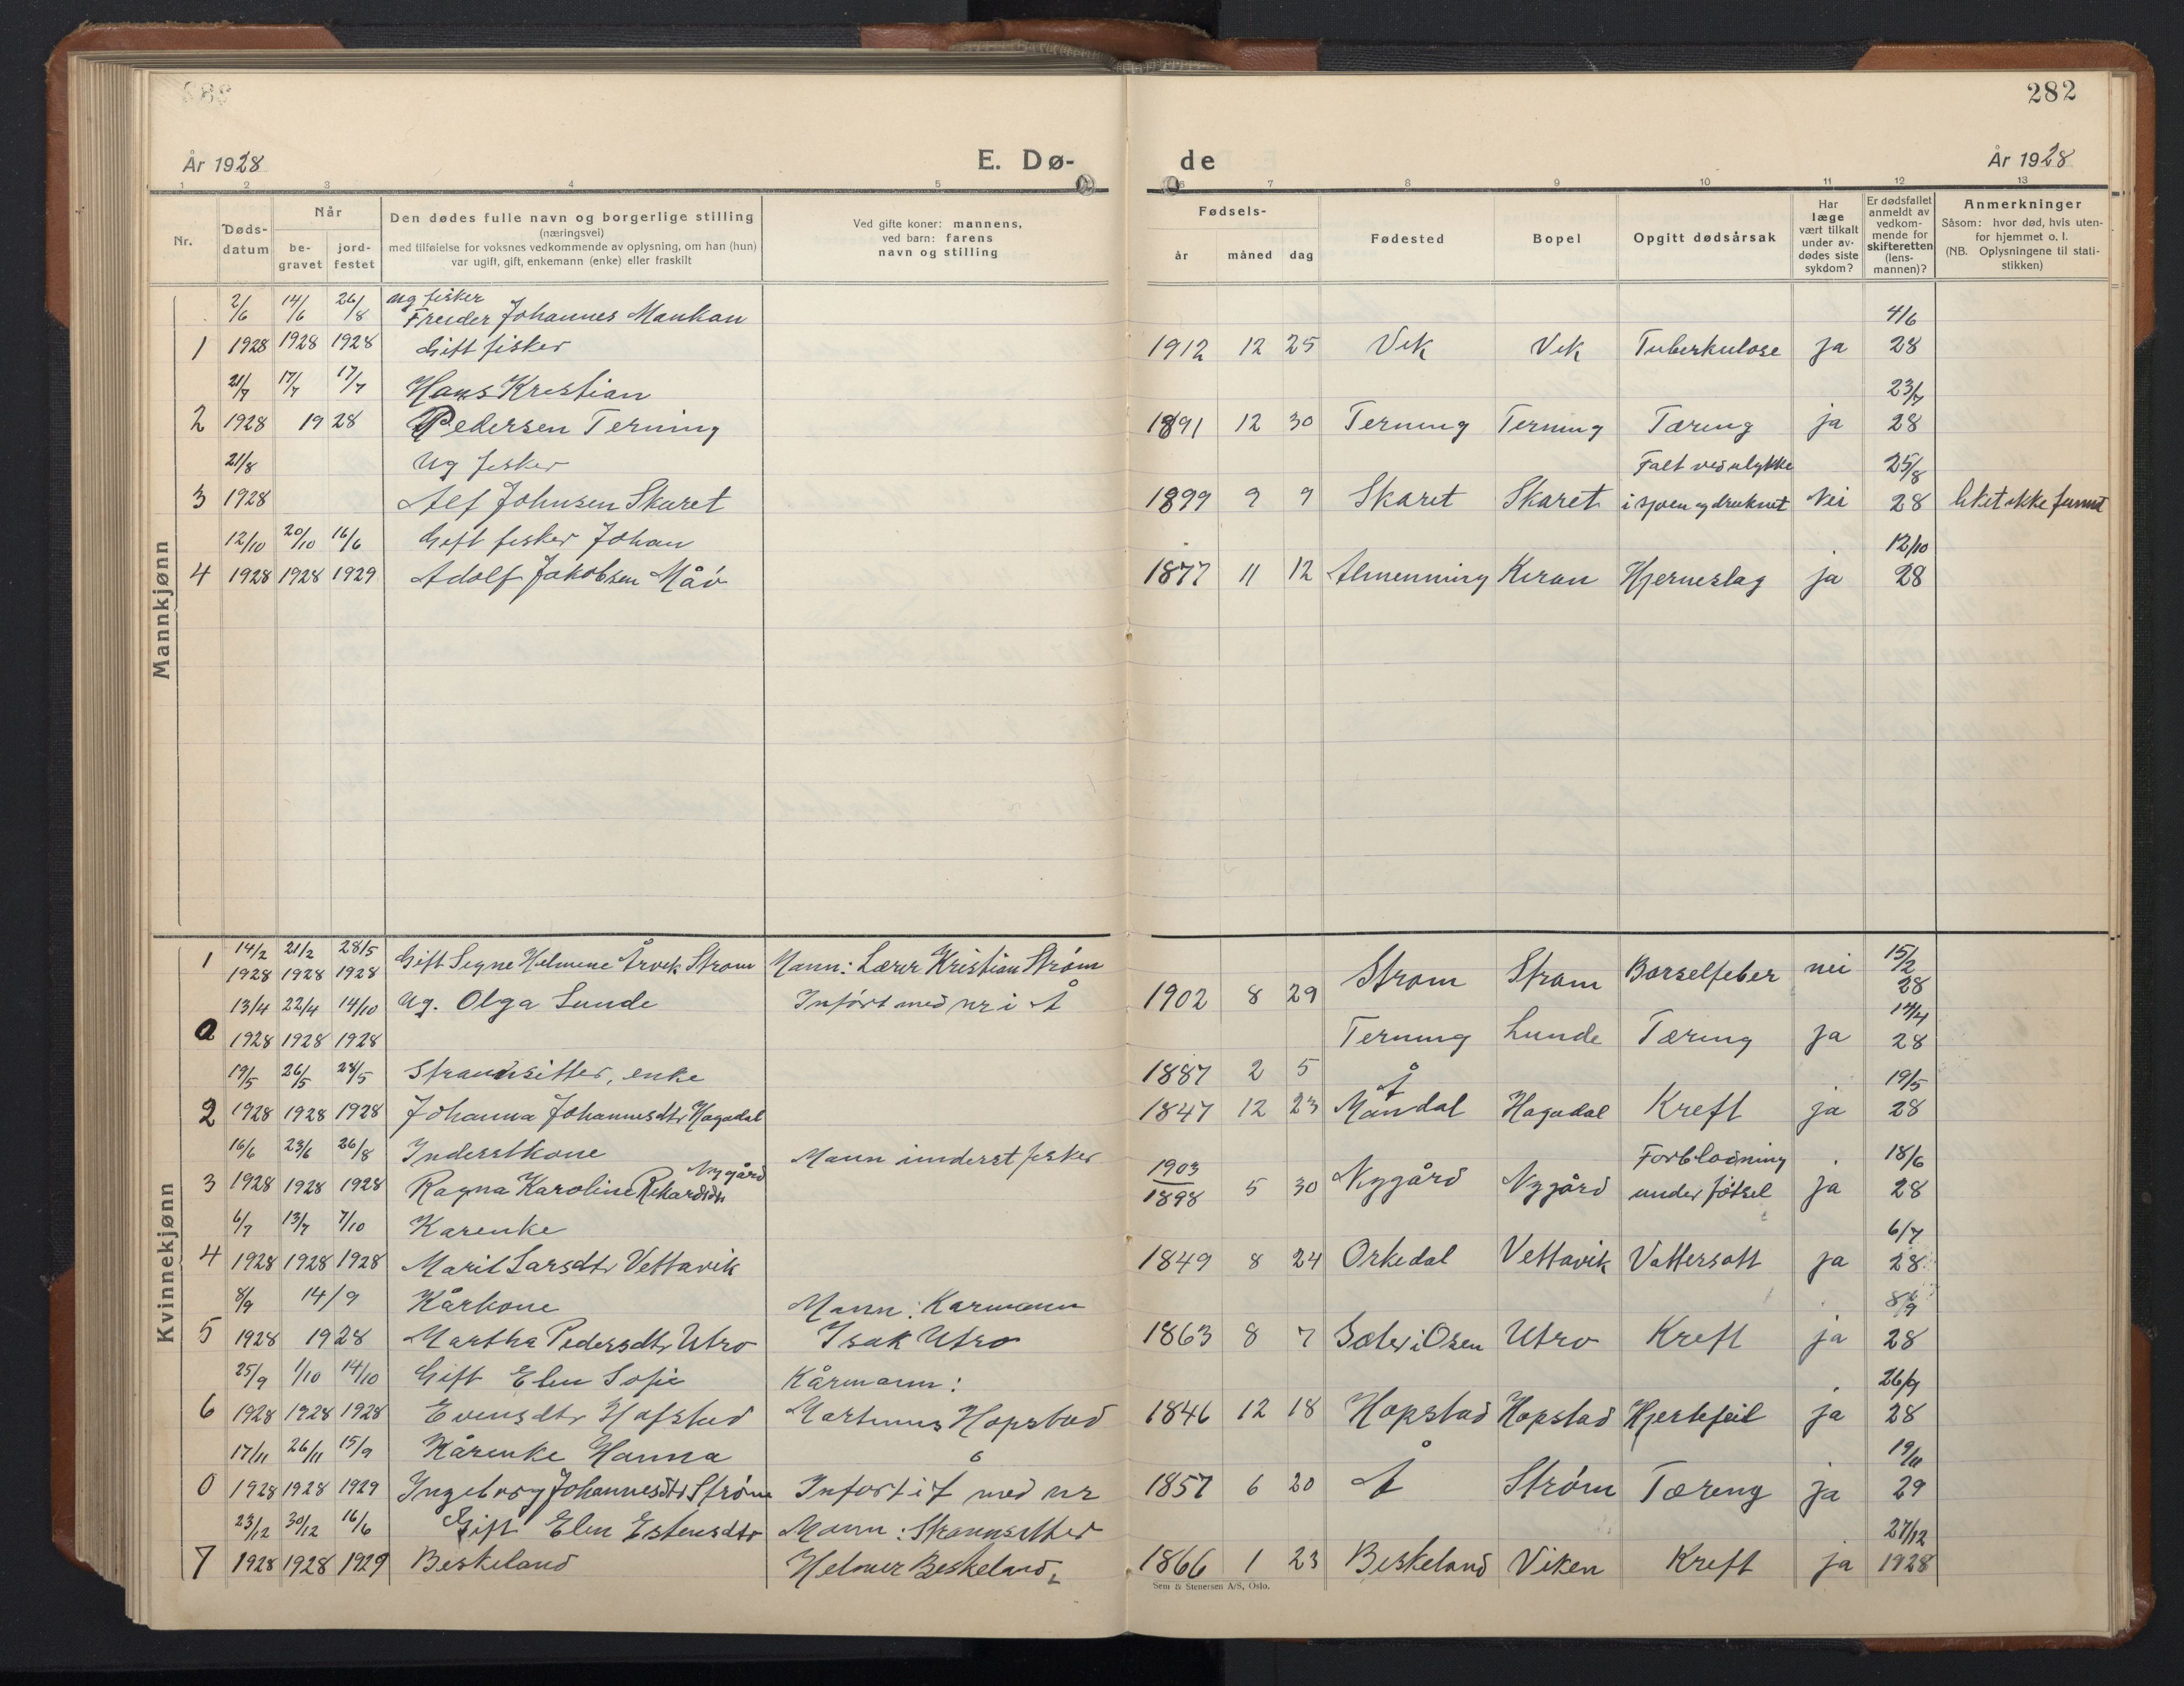 282
År 1928
E. Dø-
de
År 1928
1 2 3 4 5 6 7 8 9 10 11 12 13
Nr.
Døds-
datum
Når
be-
gravet
jord-
festet
Den dødes fulle navn og borgerlige stilling
(næringsvei)
med tilføielse for voksnes vedkommende av oplysning, om han (hun)
var ugift, gift, enkemann (enke) eller fraskilt
Ved gifte koner: mannens,
ved barn: farens
navn og stilling
Fødsels-
år måned dag
Fødested
Bopel
Opgitt dødsårsak
Har
læge
vært tilkalt
under av-
dødes siste
sykdom?
Er dødsfallet
anmeldt av
vedkom-
mende for
skifteretten
(lens-
mannen)?
Anmerkninger
Såsom: hvor død, hvis uten-
for hjemmet o. l.
(NB. Oplysningene til stati-
stikken)
Mannkjønn
2/6 14/6 26/8 ug fisker
Johannes Maukan 4/6
1 1928 1928 1928 Gift fisker 1912 12 25 Vik Vik Tuberkulose ja 28
21/7 17/7 17/7 Hans Kristian 23/7
2 1928 1928 Pedersen Terning 1891 12 30 Terning Terning Tæring ja 28
21/8 Ug fisker Falt ved ulykke 25/8
3 1928 Alf Johnsen Skaret 1899 9 9 Skaret Skaret i sjøen og druknet Nei 28 liket ikke funnet
12/10 20/10 16/6 Gift fisker Johan 12/10
4 1928 1928 1929 Adolf Jakobsen 1877 11 12 Almenning Kiran Hjerneslag ja 28
Kvinnekjønn
1 14/2 21/2 28/5 Gift Signe Helmine Årvik Strøm Mann: Lærer Kristian Strøm 15/2
1928 1928 1928 1902 8 29 Strøm Strøm Barselfeber nei 28
13/4 22/4 14/10 Ug. Olga Lunde Inført med nr i Å 17/4
0 1928 1928 1928 1887 2 5 Terning Lunde Tæring ja 28
19/5 26/5 28/5 Strandsitter, enke Å 19/5
2 1928 1928 1928 Johanna Johannesdtr Hagadal 1847 12 23 Måndal Hagadal Kreft ja 28
16/6 23/6 26/8 Inderstkone Nygård Mann inderst fisker 1903 Forblødning 18/6
3 1928 1928 1928 Ragna Karoline Rikardsdtr 1898 5 30 Nygård Nygård under fötsel ja 28
6/7 13/7 7/10 Karenke 6/7
4 1928 1928 1928 Marit Larsdtr Vettavik 1849 8 24 Orkedal Vettavik Vattersott ja 28
8/9 14/9 Kårkone Mann: Karmann 8/9
5 1928 1928 Martha Pedersdtr Utro Isak Utro 1863 8 7 Sæter i Osen Utro Kreft ja 28
25/9 1/10 14/10 Gift Elen Sofie Kårmann: 26/9
6 1928 1928 1928 Evensdtr Hofstad Martinus Hopstad 1846 12 18 Hopstad Hopstad Hjertefeil ja 28
17/11 26/11 15/9 Kårenke Hanna 19/11
0 1928 1928 1929 Ingeborg Johannesdtr Strøm Infort i Å med nr 6 1857 6 20 Å Strøm Tæring ja 29
23/12 30/12 16/6 Gift Elen Estensdtr Mann: Strannsitter 27/12
7 1928 1928 1929 Beskeland Helmer Beskeland 1866 1 23 Beskeland Viken Kreft ja 1928
Sem & Stenersen A/S, Oslo.